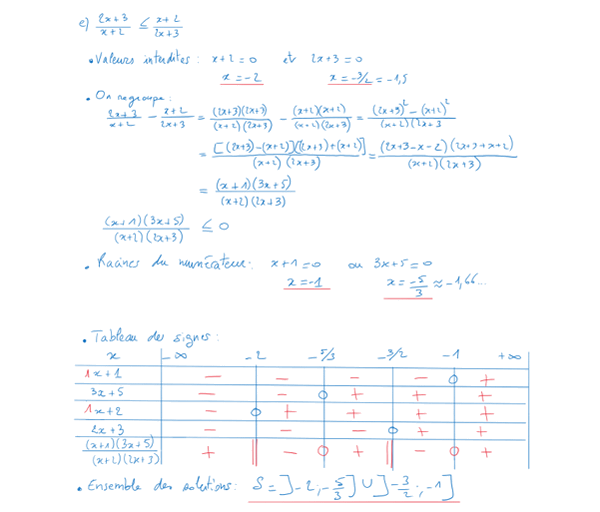 e) (2x+3)/(x+2) ≤ (x+2)/(2x+3)
• Valeurs interdites : x+2=0 et 2x+3=0
x=-2 x=-3/2=-1,5
• On regroupe :
(2x+3)/(x+2) - (x+2)/(2x+3) = (2x+3)(2x+3)/(x+2)(2x+3) - (x+2)(x+2)/(x+2)(2x+3) = ((2x+3)² - (x+2)²)/(x+2)(2x+3
= [(2x+3)-(x+2)][(2x+3)+(x+2)]/(x+2)(2x+3) = (2x+3-x-2)(2x+3+x+2)/(x+2)(2x+3)
= (x+1)(3x+5)/(x+2)(2x+3)
(x+1)(3x+5)/(x+2)(2x+3) ≤ 0
• Racines du numérateur : x+1=0 ou 3x+5=0
x=-1 x=-5/3 ≈ -1,66...
• Tableau de signes :
x -∞ -2 -5/3 -3/2 -1 +∞
1x+1 - - - - 0 +
3x+5 - - 0 + + +
1x+2 - 0 + + + +
2x+3 - - - 0 + +
(x+1)(3x+5)/(x+2)(2x+3) + || - 0 + || - 0 +
• Ensemble des solutions : S = ]-2 ; -5/3] ∪ ]-3/2 ; -1]